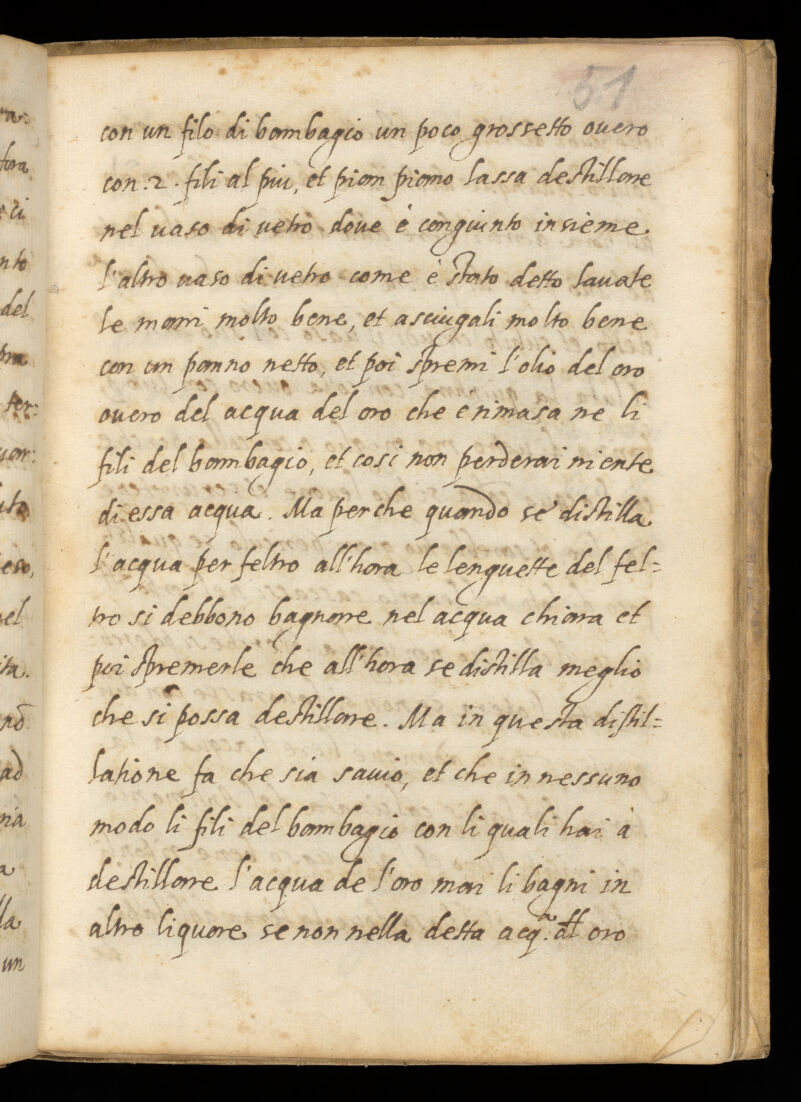 51
con un filo di bambagio un poco grossetto ouero
con .2. fili al piu, et pian piano lassa destillare
nel uaso di uetro doue è congiunto insieme
l'altro uaso di uetro come è stato detto lauate
le mani molto bene, et asciugali molto bene
con un panno netto, et poi spremi l'olio del oro
ouero del acqua del oro che è rimasa ne li
fili del bambagio, et cosi non perderai niente
di essa acqua. Ma perche quando se distilla
l'acqua per feltro all'hora le lenguette del fel=
tro si debbono bagnare nel acqua chiara et
poi spremerle che all'hora se distilla meglio
che si possa destillare. Ma in questa distil=
latione fa che sia sauio, et che in nessuno
modo li fili del bambagio con li quali hai à
destillare l'acqua de l'oro mai li bagni in
altro liquore se non nella detta acq.a dl oro